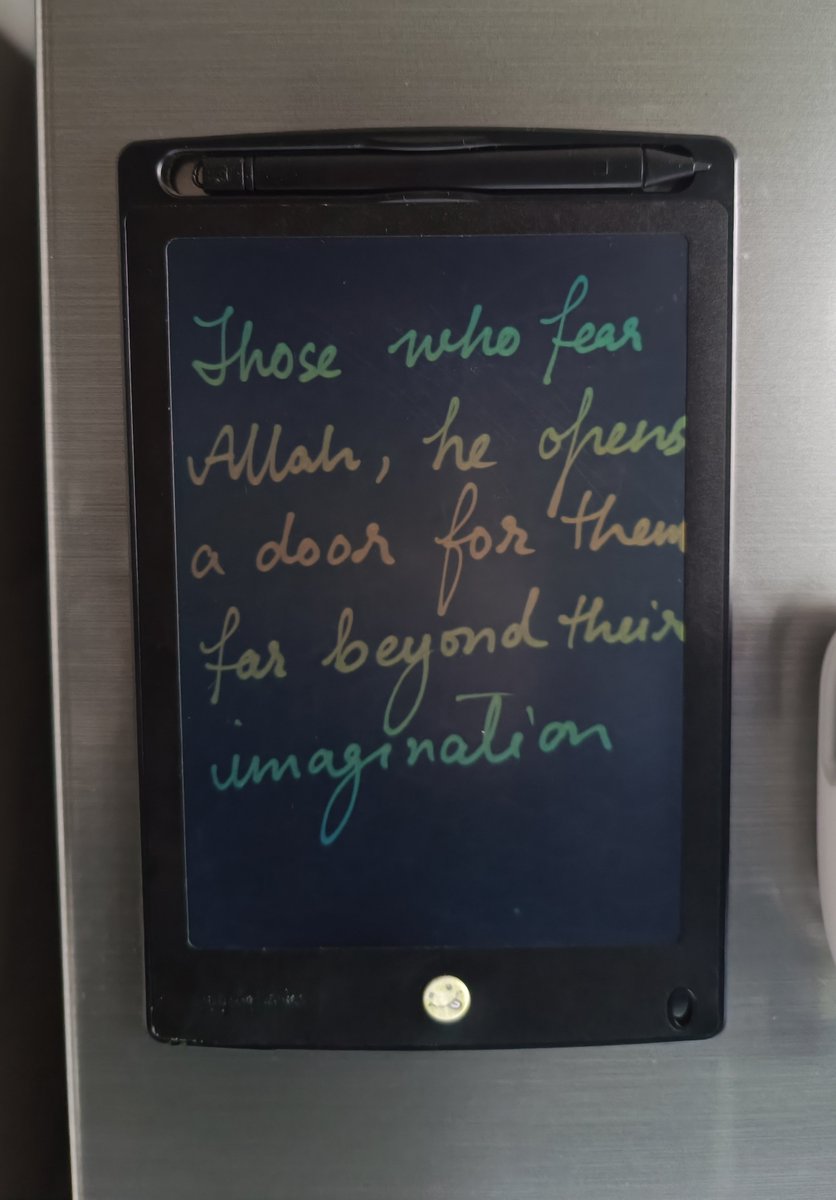 Those who fear
Allah, he opens
a door for them
far beyond their
imagination